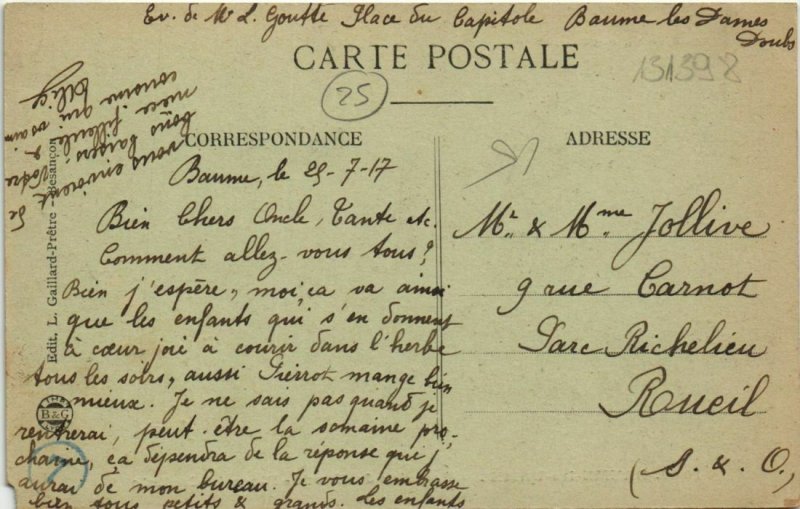 Ev. de Mr L. Goutte Place du Capitole Baume les Dames
Doubs
CARTE POSTALE
131398
25
CORRESPONDANCE
ADRESSE
Baume, le 25-7-17
Bien Chers Oncle, Tante etc.
Comment allez-vous tous?
Bien j'espère, moi, ça va ainsi
que les enfants qui s'en donnent
à cœur joie à courir dans l'herbe
tous les soirs, aussi Pierrot mange bien
mieux. Je ne sais pas quand je
rentrerai, peut-être la semaine pro-
chaine, ça dépendra de la réponse que j'
aurai de mon bureau. Je vous embrasse
bien tous petits & grands. Les enfants
vous envoient de
bons baisers. Votre
nièce, filleule &
cousine qui vous
Mr. & Mme Jollive
9 rue Carnot
Parc Richelieu
Rueil
(S. & O.)
Edit. L. Gaillard-Prêtre - Besançon
B&G